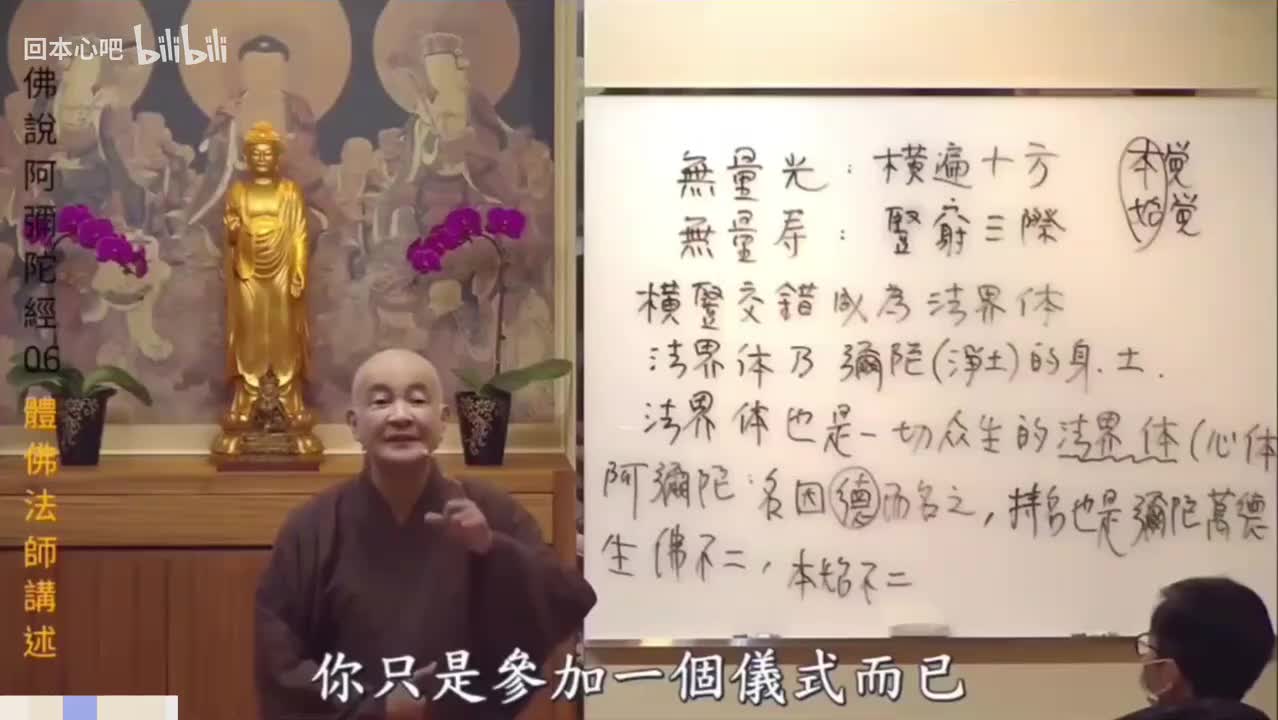 回本心吧 bilibili
佛說阿彌陀經06 體佛法師講述
無量光：橫遍十方
無量寿：豎窮三際
本觉
始觉
橫豎交錯成為法界体
法界体乃彌陀(淨土)的身.土.
法界体也是一切众生的法界体(心体
阿彌陀：名因德而名之，持名也是彌陀萬德
生佛不二，本始不二
你只是參加一個儀式而已